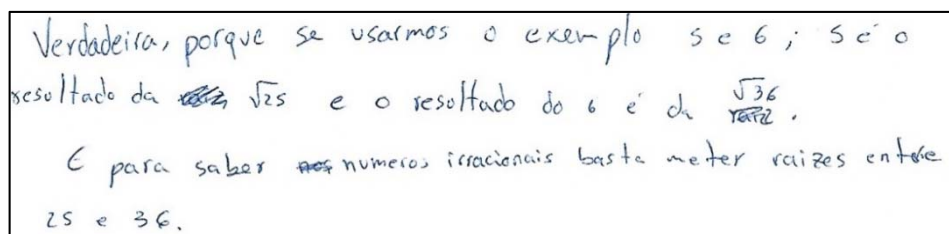 Verdadeira, porque se usarmos o exemplo 5 e 6; 5 é o
resultado da √25 e o resultado do 6 é da √36.
E para saber numeros irracionais basta meter raizes entre
25 e 36.